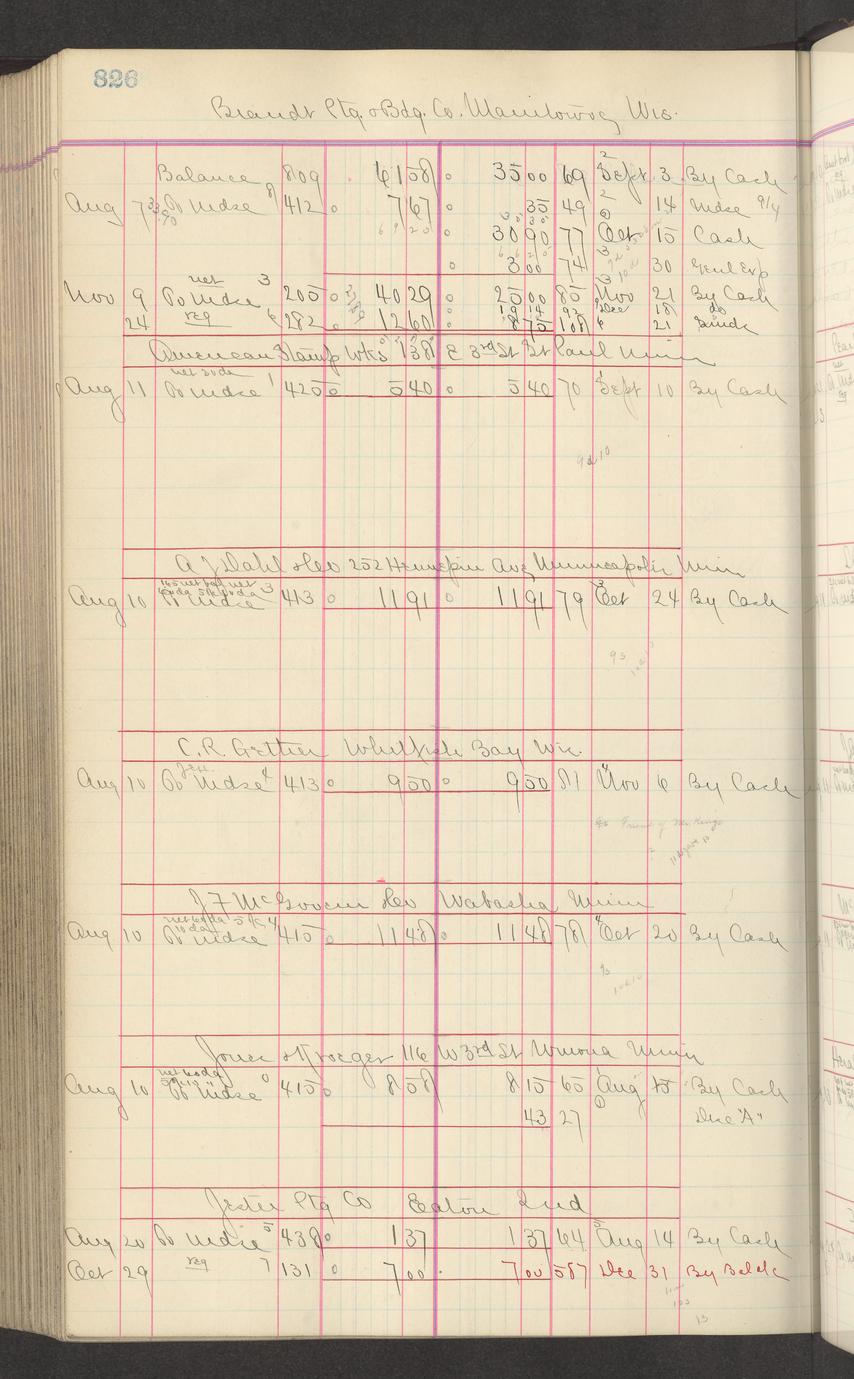 826
Brandt Ptg. & Bdg. Co. Manitowoc, Wis.
Balance 809 61 58 35 00 69 Sept 3 By Cash
Aug 7 To Mdse 412 7 67 35 49 14 Mdse 9/4
30 90 77 Oct 15 Cash
3 00 74 30 Genl Exp
net 3
Nov 9 To Mdse 205 40 29 25 00 85 Nov 21 By Cash
19 14 92 Dec 18 do
24 reg 6 282 12 60 8 75 108 21 Sunds
American Stamp Wks 138 E 3rd St St Paul Minn
net 30 da
Aug 11 To Mdse 1 425 5 40 5 40 70 Sept 10 By Cash
A J Dahl & Co 252 Hennepin Ave Minneapolis Minn
Aug 10 To Mdse 3 413 11 91 11 91 79 Oct 24 By Cash
C. R. Gettier Whitefish Bay Wis.
Aug 10 To Mdse 4 413 9 50 9 50 81 Nov 6 By Cash
J F McGovern & Co Wabasha Minn
net 60 da 5%
10 da
Aug 10 To Mdse 4 415 11 48 11 48 78 Oct 20 By Cash
Jones & Kroeger 116 W 3rd St Winona Minn
net 60 da
Aug 10 To Mdse 0 415 8 58 8 15 65 Aug 15 By Cash
43 27 Disc "A"
Jester Ptg Co Eaton Ind
Aug 20 To Mdse 5 438 1 37 1 37 64 Aug 14 By Cash
Oct 29 reg 7 131 7 00 7 00 587 Dec 31 By Baldc